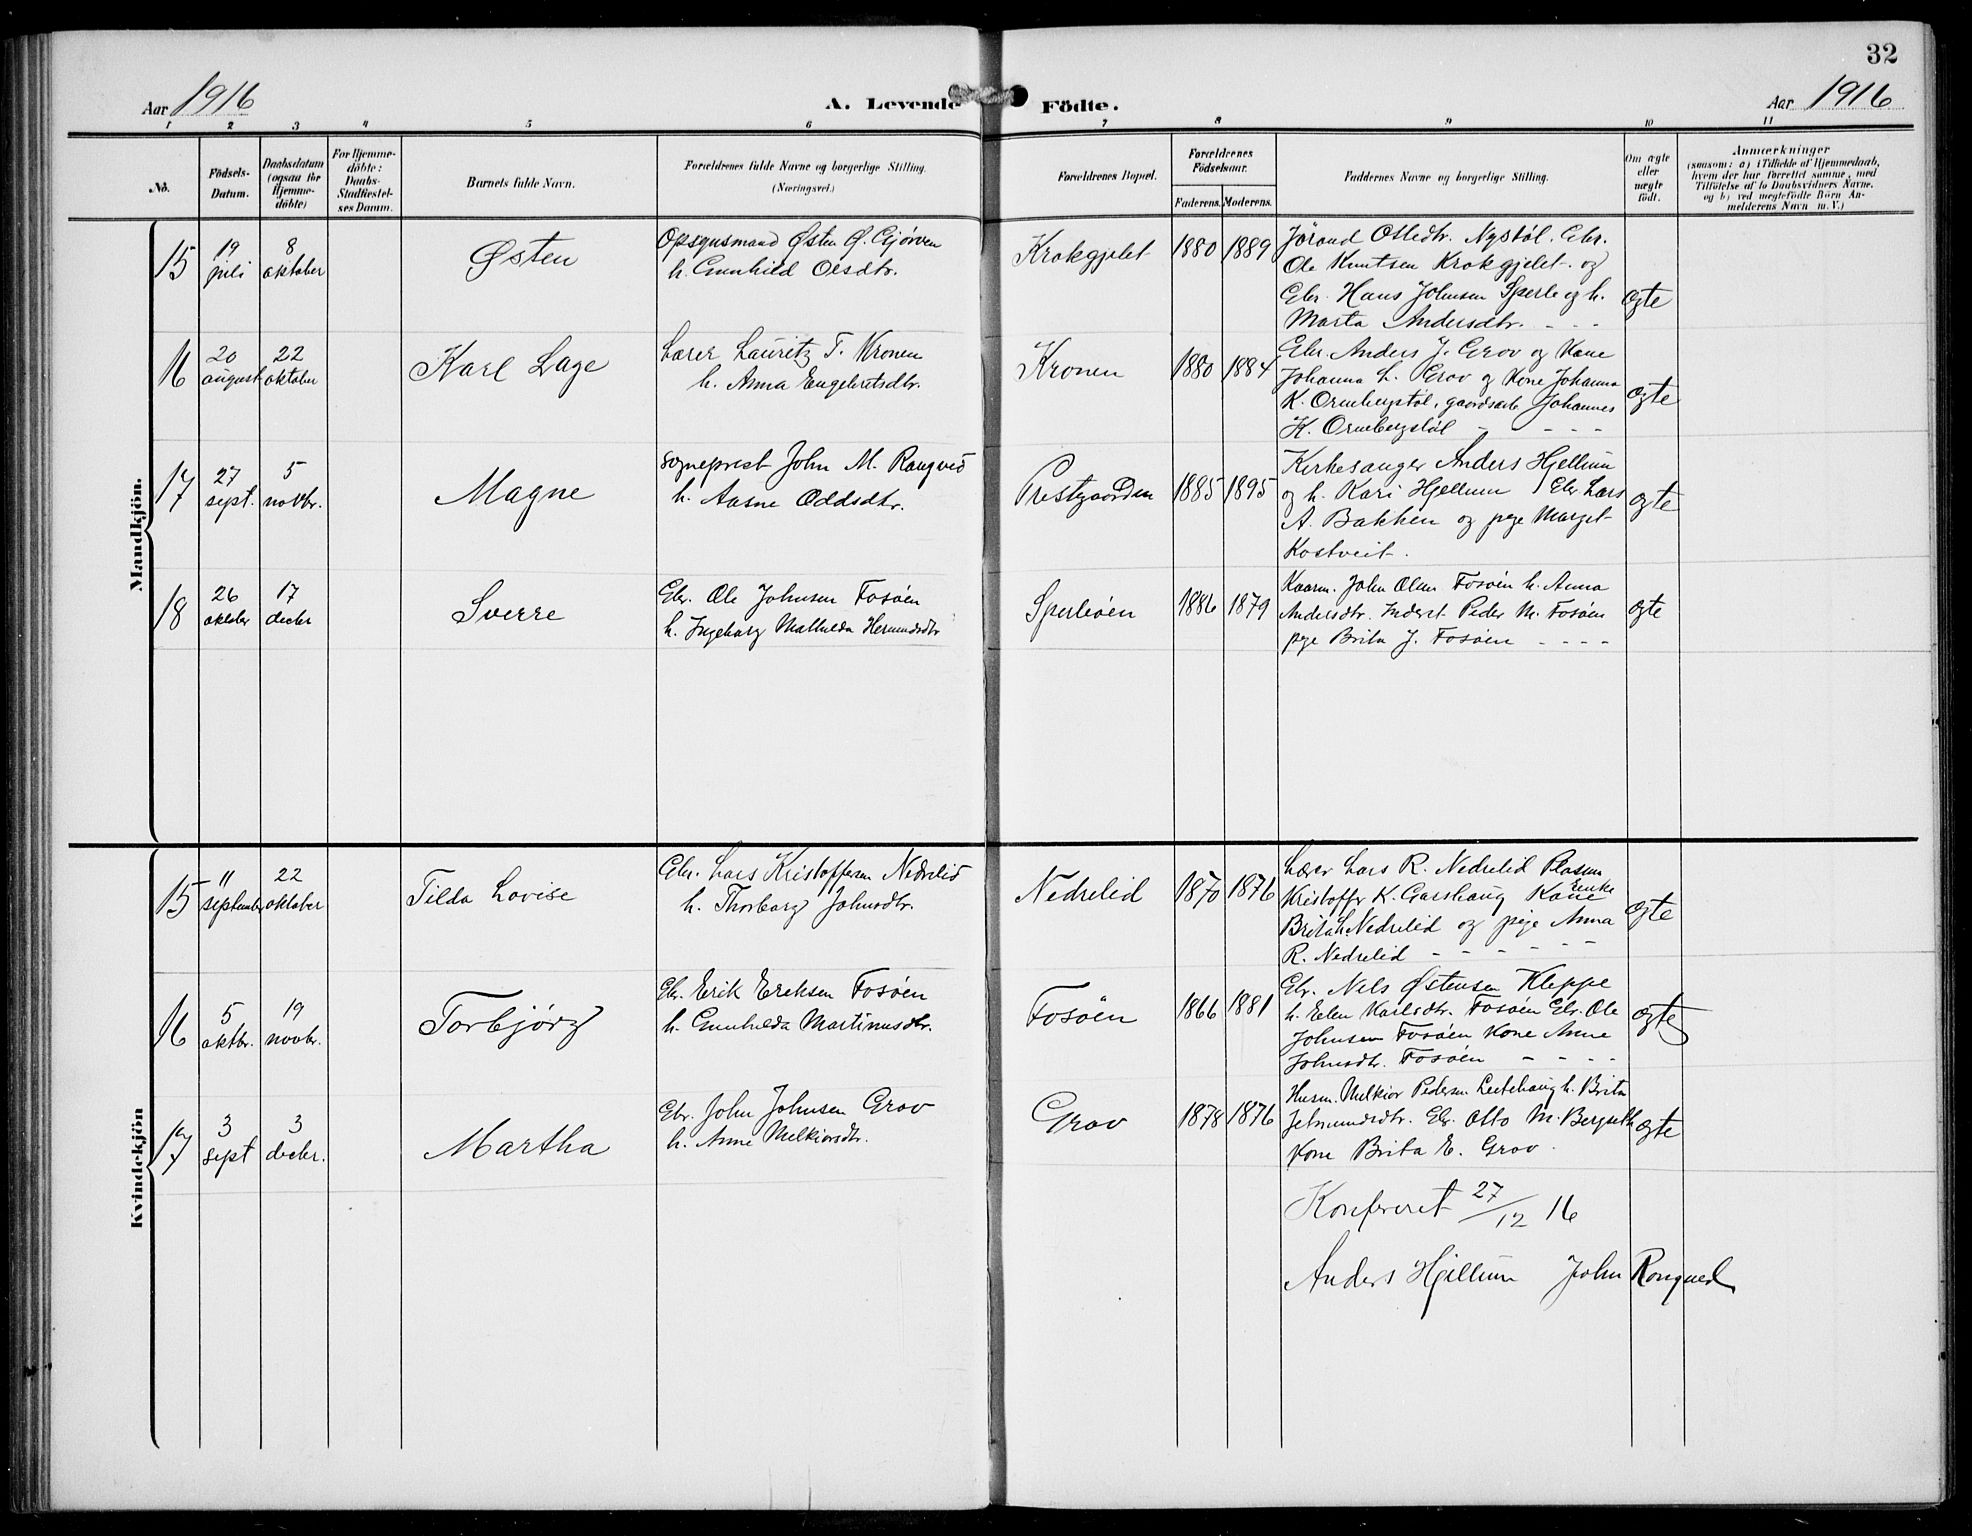 32
Aar 1916
A. Levende Födte.
Aar 1916
1 2 3 4 5 6 7 8 9 10 11
No.
Födsels-
Datum.
Daabsdatum
(ogsaa for
Hjemme-
döbte)
For Hjemme-
döbte:
Daabs-
Stadfæstel-
ses Datum.
Barnets fulde Navn.
Forældrenes fulde Navne og borgerlige Stilling.
(Næringsvei.)
Forældrenes Bopæl.
Forældrenes
Födselsaar.
Faderens. Moderens.
Faddernes Navne og borgerlige Stilling.
Om ægte
eller
uægte
födt.
Anmærkninger
(saasom: a) i Tilfælde af Hjemmedaab,
hvem der har forrettet samme, med
Tilföielse af to Daabsvidners Navne,
og b) ved uægtefödte Börn An-
melderens Navn m. V.)
Mandkjön.
15
19
juli
8
oktober
Østen
Opsynsmand Østen Ø. Gjørven
h. Gunhild Olsdtr.
Krokgjelet
1880 1889
Jörand Ottedtr. Nystöl. Gbr.
Ole Knutsen Krokgjelet og
Gbr. Hans Johnsen Sperle og h.
Marta Andersdtr. - - -
ægte
16
20
august
22
oktober
Karl Lage
Lærer Lauritz T. Kronen
h. Anna Engebretsdtr.
Kronen
1880 1884
Gbr. Anders J. Grov og Kone
Johanna L. Grov og Kone Johanna
K. Ormbergstöl, gaardsarb. Johannes
K. Ormbergstöl - - - -
ægte
17
27
sept.
5
novbr.
Magne
Sogneprest John M. Rongved
h. Aasne Oddsdtr.
Prestgaarden
1885 1895
Kirkesanger Anders Hjellum
og h. Kari Hjellum Gbr. Lars
A. Bakken og pige Marget
Kostveit.
ægte
18
26
oktober
17
decbr
Sverre
Gbr. Ole Johnsen Fosöen
h. Ingeborg Mathilda Hermundsdtr
Sperleöen
1886 1879
Kaarm. John Olsen Fosöen h. Anna
Andersdtr. Inderst Peder M. Fosöen
pige Brita J. Fosöen - - - -
ægte
Kvindekjön
15
11
september
22
oktober
Tilda Lovise
Gbr. Lars Kristoffersen Nedrelid
h. Thorborg Johnsdtr.
Nedrelid
1870 1876
Lærer Lars R. Nedrelid Plasm
Kristoffer K. Garshaug Kone Enke
Brita L. Nedrelid og pige Anna
R. Nedrelid - - - - -
ægte
16
5
oktbr.
19
novbr.
Torbjörg
Gbr. Erik Eriksen Fosöen
h. Gunhilda Martinusdtr.
Fosöen
1866 1881
Gbr. Nils Østensen Kleppe
h. Elen Karlsdtr. Fosöen Gbr. Ole
Johnsen Fosöen Kone Anne
Johnsdtr. Fosöen - - - -
ægte
17
3
sept
3
decbr.
Martha
Gbr. John Johnsen Grov
h. Anne Melkiorsdtr.
Grov
1878 1876
Husm. Melkior Pedersen Leitehaug h. Brita
Jetmundsdtr. Gbr. Otto M. Bergseth
Kone Brita E. Grov.
ægte
Konfereret 27/12 16
Anders Hjellum John Rongved